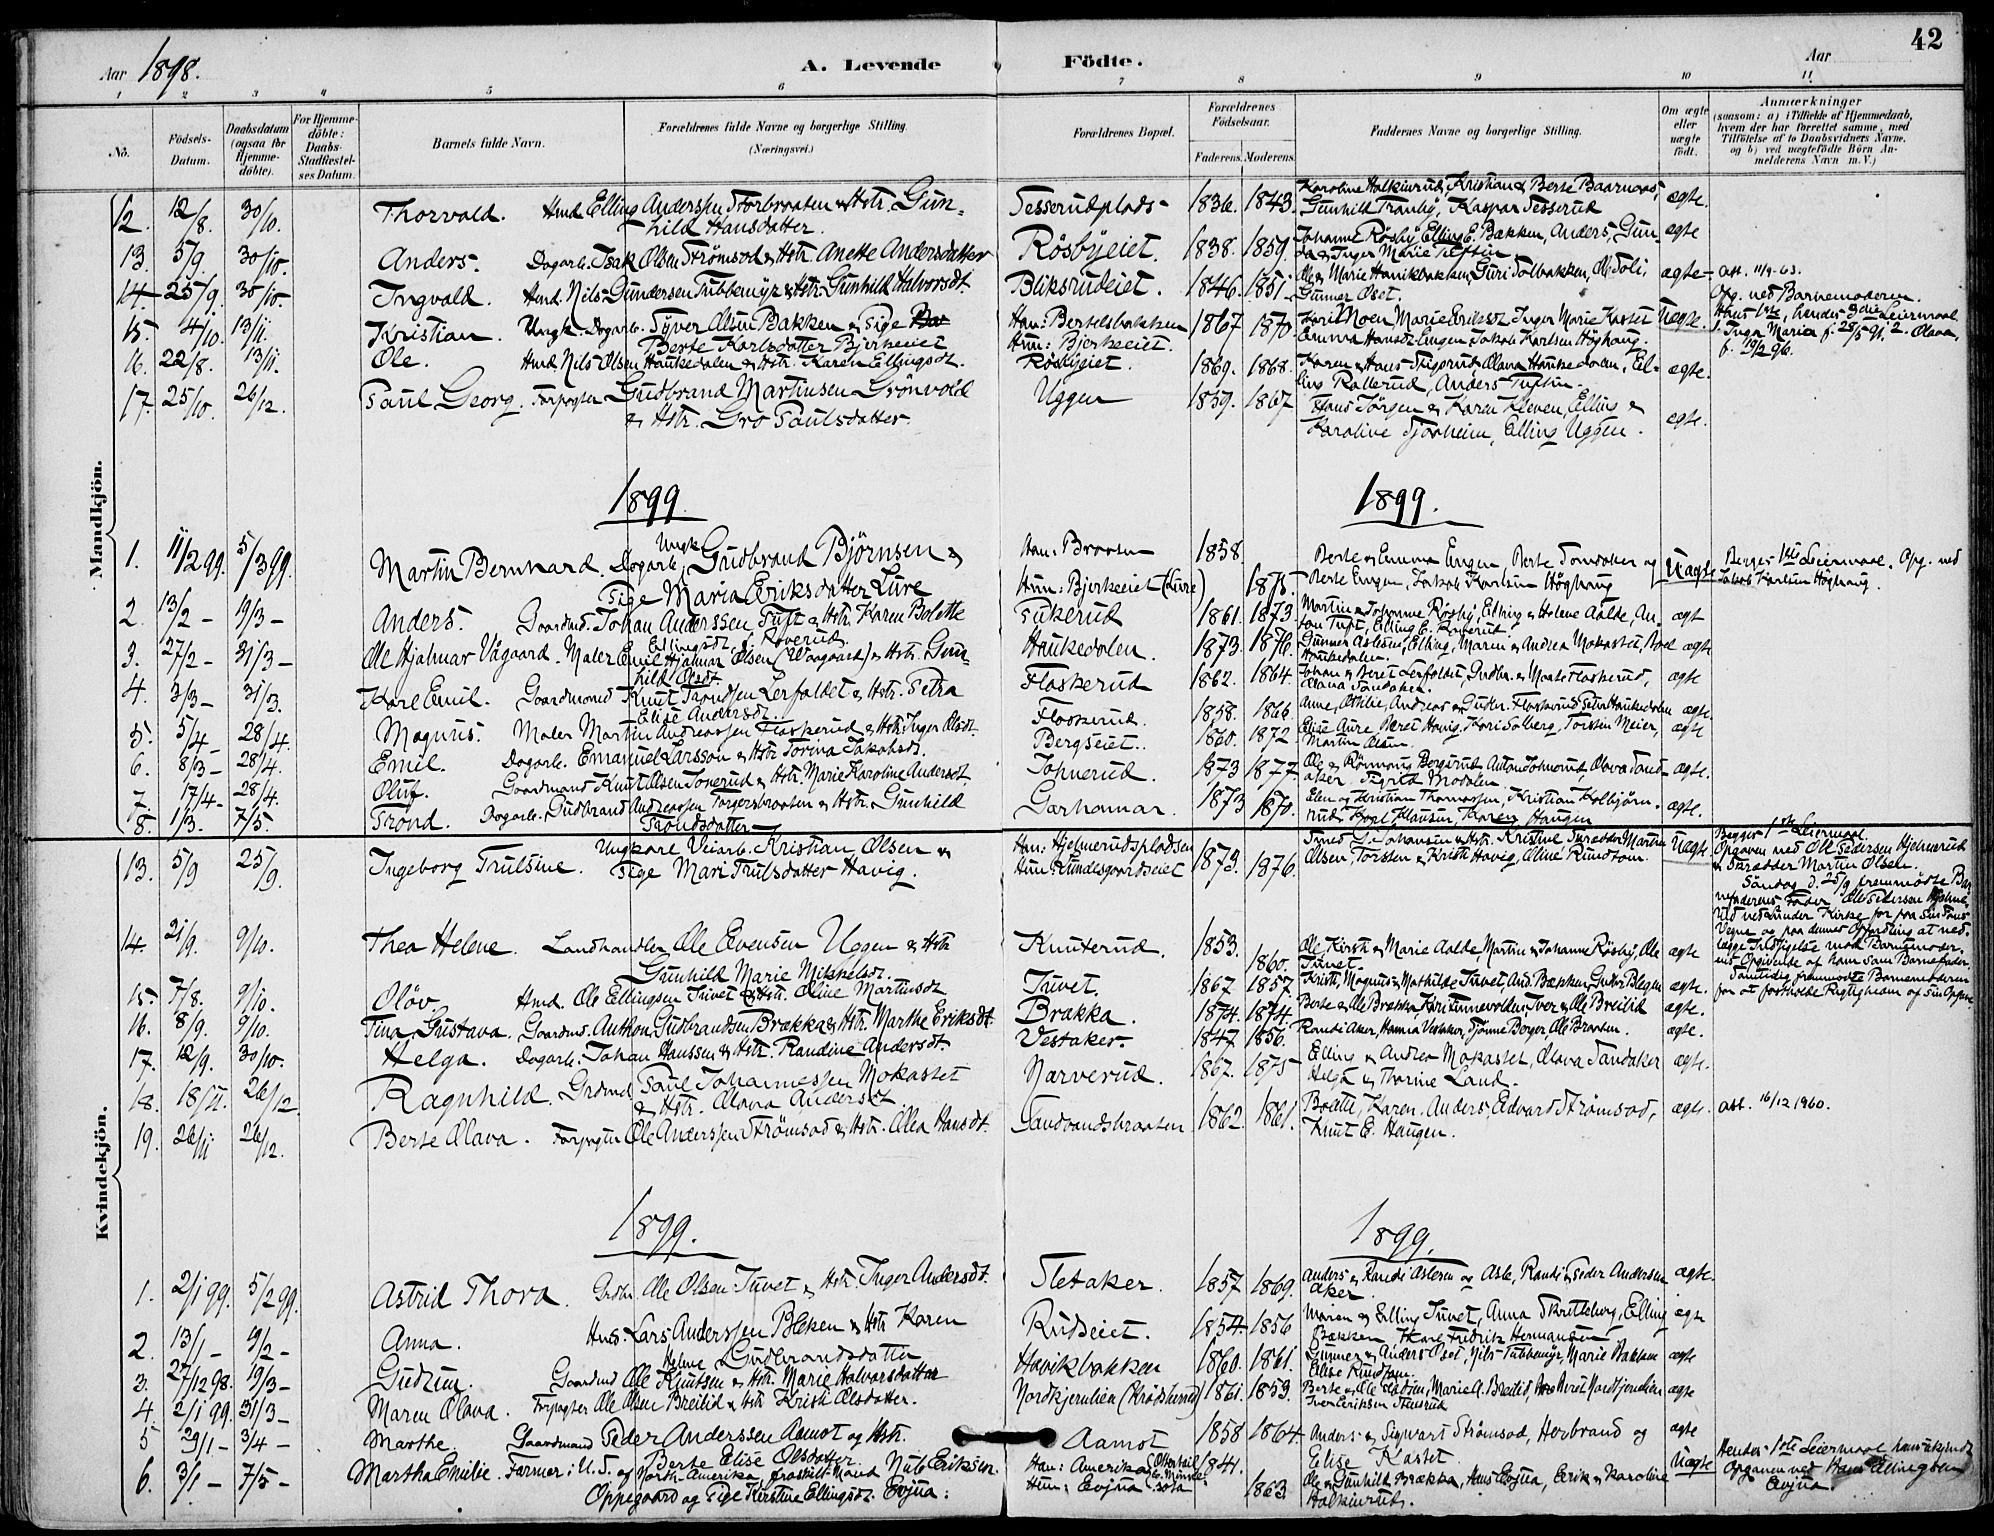 42
Aar 1898. A. Levende Födte. Aar
1 2 3 4 5 6 7 8 9 10 11
No. Födsels-Datum. Daabsdatum (ogsaa for Hjemme-döbte). For Hjemme-döbte: Daabs-Stadfæstel-ses Datum. Barnets fulde Navn. Forældrenes fulde Navne og borgerlige Stilling. (Næringsvei.) Forældrenes Bopæl. Forældrenes Födselsaar. Faderens. Moderens. Faddernes Navne og borgerlige Stilling. Om ægte eller uægte födt. Anmærkninger (saasom: a) i Tilfælde af Hjemmedaab, hvem der har forrettet samme, med Tilföielse af to Daabsvidners Navne, og b) ved uægtefödte Börn Anmelderens Navn m. V.)
Mandkjön.
12. 12/8. 30/10. Thorvald. Hmd. Elling Anderssen Storbraaten & Hstr. Gunhild Hansdatter. Tesserudplads 1836. 1843. Karoline Halkinrud, Kristian & Berte Baarnaas, Gunhild Tranby, Kaspar Tesserud ægte.
13. 5/9. 30/10. Anders. Dagarb. Isak Olsen Strømsod & Hstr. Anette Andersdatter Rösbyeiet. 1838. 1859. Johanne Røsby, Elling E. Bækken, Anders, Gunda & Inger Marie Tuftin ægte
14. 25/9. 30/10. Ingvald. Hmd. Nils Gundersen Tubbemyr & Hstr. Gunhild Halvorsdt. Bliksrudeiet. 1846. 1851. Ole & Marie Hanikbakken, Guri Solbakken, Ole Foli, Gunner Øset. ægte Att. 11/9-63.
15. 4/10. 13/11. Kristian. Ungk. Dagarb. Syver Olsen Bakken & Pige Berte Karlsdatter Bjerkeeiet Han: Bertelsbakken Hun: Bjerkeeiet. 1867 1870 Kari Moen, Marie Eriksdt. Inger Marie Kastet Emma Hansdt. Engen, Jakob Karlsen Høghaug. Uægte. Opg. ved Barnemoderen. Hans 1ste, hendes 3die Leiermaal 1. Inga Maria f. 25/5 91. 2. Olava, f. 19/2 96.
16. 22/8. 13/11. Ole. Hmd Nils Olsen Haukedalen & Hstr. Karen Ellingsdt. Rösbyeiet. 1869. 1868. Karen & Hans Stigsrud, Olava Haukedalen, Elling Rallerud, Anders Tuftin. ægte.
17. 25/10. 26/12. Paul Georg. Forpagter Gudbrand Martinsen Grönvold & Hstr. Gro Paulsdatter. Uggen 1859. 1867 Hans Jörgen & Karen Kleven, Elling & Karoline Fjorheim, Elling Uggen. ægte.
1899. 1899.
1. 11/2 99. 5/3 99. Martin Bernhard. Ungk. Dagarb. Gudbrand Björnsen & Pige Maria Eriksdatter Lure Han: Braaten Hun: Bjerkeeiet (Lure) 1858 1875. Berte & Emma Engen, Berte Sandaker og Berte Engen, Jakob Karlsen Höghaug Uægte Begges 1ste Leiermaal. Opg. ved Jakob Karlsen Höghaug.
2. 13/2 - 19/3 - Anders. Gaardmd. Johan Anderssen Tuft & Hstr. Karen Bolette Ellingsdt. Røverud. 1861. 1873 Martin & Johanne Røsby, Elling & Helene Aalde, Anton Tuft, Elling E. Røverud. ægt
3. 27/2 - 31/3 - Ole Hjalmar Vågaard. Maler Emil Hjalmar Olsen (Waagaard) & Hstr. Gunhild Olsdt. Haukedalen. 1873. 1876. Gunner Aslesen, Elling, Maren & Andrea Mokastet, Haukedalen. ægte
4. 3/3 - 31/3. Karl Emil. Gaardmand Knut Trondsen Lerfaldet & Hstr. Petra Elise Andersdt. Flaskerud 1862. 1864. Johan & Beret Lerfaldet, Gudbr. & Marte Flaskerud, Olava Sandaker. ægte
5. 5/4 - 28/4. Magnus. Maler Martin Andreassen Flaskerud & Hstr. Inger Olsdt. Flaskerud. 1858. 1866 Anne, Othlie, Andreas & Gudbr. Flaskerud, Peter Haukedalen ægte.
6. 8/3 - 28/4. Emil. Dagarb. Emanuel Larsson & Hstr. Torina Jakobsdt. Bergseiet. 1860. 1872 Elise Aure, Beret Havig, Kari Solberg, Torsten Meier, Martin Olsen. ægte
7. 17/4 - 28/4. Oluf. Gaardmand Knut Olsen Toverud & Hstr. Marie Karoline Andersdt. Tohnerud. 1873 1877 Ole & Rönnaug Bergsrud, Anton Tohnerud, Olava Sandaker, Sigrid Modalen. ægte.
8. 1/3. 7/5. Trond. Dagarb. Gudbrand Andreassen Torgersbraaten & Hstr. Gunhild Trondsdatter Garhamar. 1873 1870. Elen og Kristian Thomassen, Kristian Kolbjørnrud, Karl Klausen, Karen Haugen ægte.
Kvindekjön.
13. 5/9 25/9. Ingeborg Trulsine. Ungkarl Veiarb. Kristian Olsen & Pige Mari Trulsdatter Havig. Han: Hjelmerudspladsen Hun: Rundesgaardseiet 1873. 1876. Smed G. Johansen & Hstr. Kristine, Skrædder Martin Olsen, Torsten & Kristi Havig, Oline Rundtom. Uægte Begges 1ste Leiermaal. Opgaven ved Ole Pedersen Hjelmerud & Skrædder Martin Olsen. Söndag d. 25/9 fremmødte Barnefaderens Fader Ole Pedersen Hjelmerud ved Lunder Kirke for paa sin Søns Vegne og paa dennes Opfordring at nedlægge Indsigelse mod Barnemoderens Opgivende af ham som Barnefader. Samtidig fremmødte Barnemoderen for at fastholde Rigtigheden af sin Opgave.
14. 21/9. 9/10. Thea Helene. Landhandler Ole Evensen Uggen & Hstr. Gunhild Marie Mikkelsdt. Knuterud. 1853. 1860. Ole, Kirsti & Marie Aalde, Martin & Johanne Rösby, Ole Tuvet. ægte
15. 7/8. 9/10. Olöv. Hmd. Ole Ellingsen Tuvet & Hstr. Oline Martinsdt. Tuvet. 1867 1857 Kristi, Magnus & Mathilde Tuvet, And. Bækken, Gudbr. Blegen ægte.
16. 8/9. 9/10. Tina Gustava. Gaardmd. Anthon Gudbrandsen Brækka & Hstr. Marthe Eriksdt. Brækka. 1874. 1874. Berte & Ole Brækka, Kari Finnevolden, Iver & Ole Breilid ægte.
17. 12/9. 30/10. Helga. Dagarb. Johan Hanssen & Hstr. Randine Andersdt. Vestaker. 1847 1856. Randi Aker, Hanna Vestaker, Ole Braaten. ægte.
18. 18/11. 26/12. Ragnhild. Grdmd. Paul Johannessen Mokastet & Hstr. Olava Andersdt. Narverud. 1867. 1875 Elling & Andrea Mokastet, Olava Sandaker Helga & Thorine Land. ægte.
19. 26/11 26/12. Berte Olava. Forpagter Ole Anderssen Strømsod & Hstr. Olea Hansdt. Sandvandsbraaten 1862. 1861. Bodte, Karen, Anders, Edvard Strømsod, Knut E. Haugen. ægte. att. 16/12 1960.
1899. 1899.
1. 2/1 99. 5/2 99. Astrid Thora. Grdbr. Ole Olsen Tuvet & Hstr. Inger Andersdt. Sletaker. 1857. 1869. Anders & Randi Aslesen og Asle, Randi & Peder Andersen Aker. ægte.
2. 13/1 - 9/2 - Anna. Hmd. Lars Anderssen Bleken & Hstr. Karen Gudbrandsdatter Rudseiet. 1854. 1856 Maren & Elling Tuvet, Anna Skretteberg, Elling Bækken, Karl Fredrik Hermansen ægte
3. 27/12 98. 19/3 - Gudrun. Gaardmd Ole Knutsen & Hstr. Helene Marie Halvorsdatter Havikbakken 1860. 1861. Gunner & Anders Øset, Nils Tubbemyr, Marie Bakken Elise Rundtom. ægte
4. 2/1 99. 31/3 - Maren Olava. Forpagter Ole Olsen Breilid & Hstr. Kristi Olsdatter. Nordkjernlien (Krødsherred) 1861. 1853. Berte & Ole Slaatsen, Marie A. Breilid, Beret Nordkjernlien Iver Eriksen Stensrud ægte
5 29/1 - 3/4 - Marthe. Gaardmand Peder Anderssen Aamot og Hstr. Berte Elise Olsdatter. Aamot 1858 1864. Anders & Sigwart Strømsod, Herbrand og Elise Kastet. ægte
6. 3/1 - 7/5 - Martha Emilie. Farmer i U.S. of North-Amerika, fraskilt Mand Nils Eriksen Oppegaard og Pige Kirstine Ellingsdt. Evjua. Han: Amerika (Ottertail C. Minnesota Hun: Evjua 1841. 1863. Ole & Gunhild Brækka, Hans Evjua, Eerik & Karoline Halkinrud. Uægte Hendes 1ste Leiermaal, hans ukjendt. Opgaven ved Hans Ellingsen Evjua.